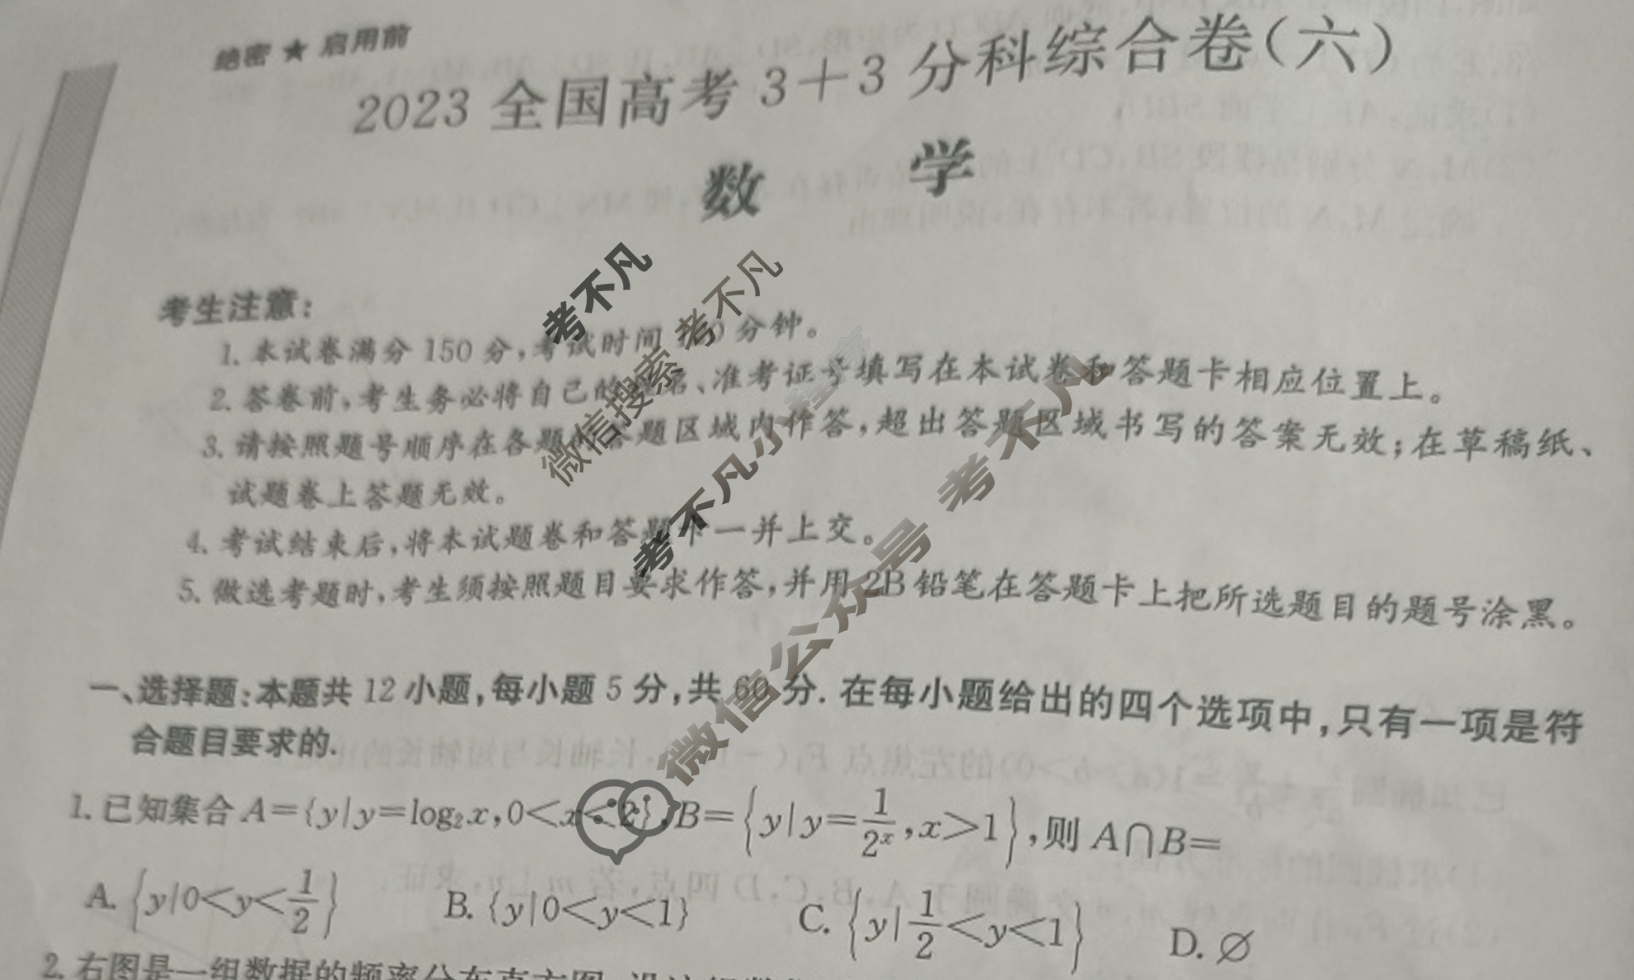 绝密 ★ 启用前
2023 全国高考 3+3 分科综合卷(六)
数 学
考生注意:
1. 本试卷满分 150 分,考试时间 分钟。
2. 答卷前,考生务必将自己的 名、准考证号填写在本试卷和答题卡相应位置上。
3. 请按照题号顺序在各题 答题区域内作答,超出答题区域书写的答案无效;在草稿纸、
试题卷上答题无效。
4. 考试结束后,将本试题卷和答题卡一并上交。
5. 做选考题时,考生须按照题目要求作答,并用 2B 铅笔在答题卡上把所选题目的题号涂黑。
一、选择题:本题共 12 小题,每小题 5 分,共 60 分. 在每小题给出的四个选项中,只有一项是符
合题目要求的.
1. 已知集合 A={y|y=log₂x,0<x<2},B={y|y=1/2ˣ,x>1},则 A∩B=
A. {y|0<y<1/2} B. {y|0<y<1} C. {y|1/2<y<1} D. ∅
2. 右图是一组数据的频率分布直方图
考不凡
微信搜索 考不凡
考不凡小程序
微信公众号 考不凡